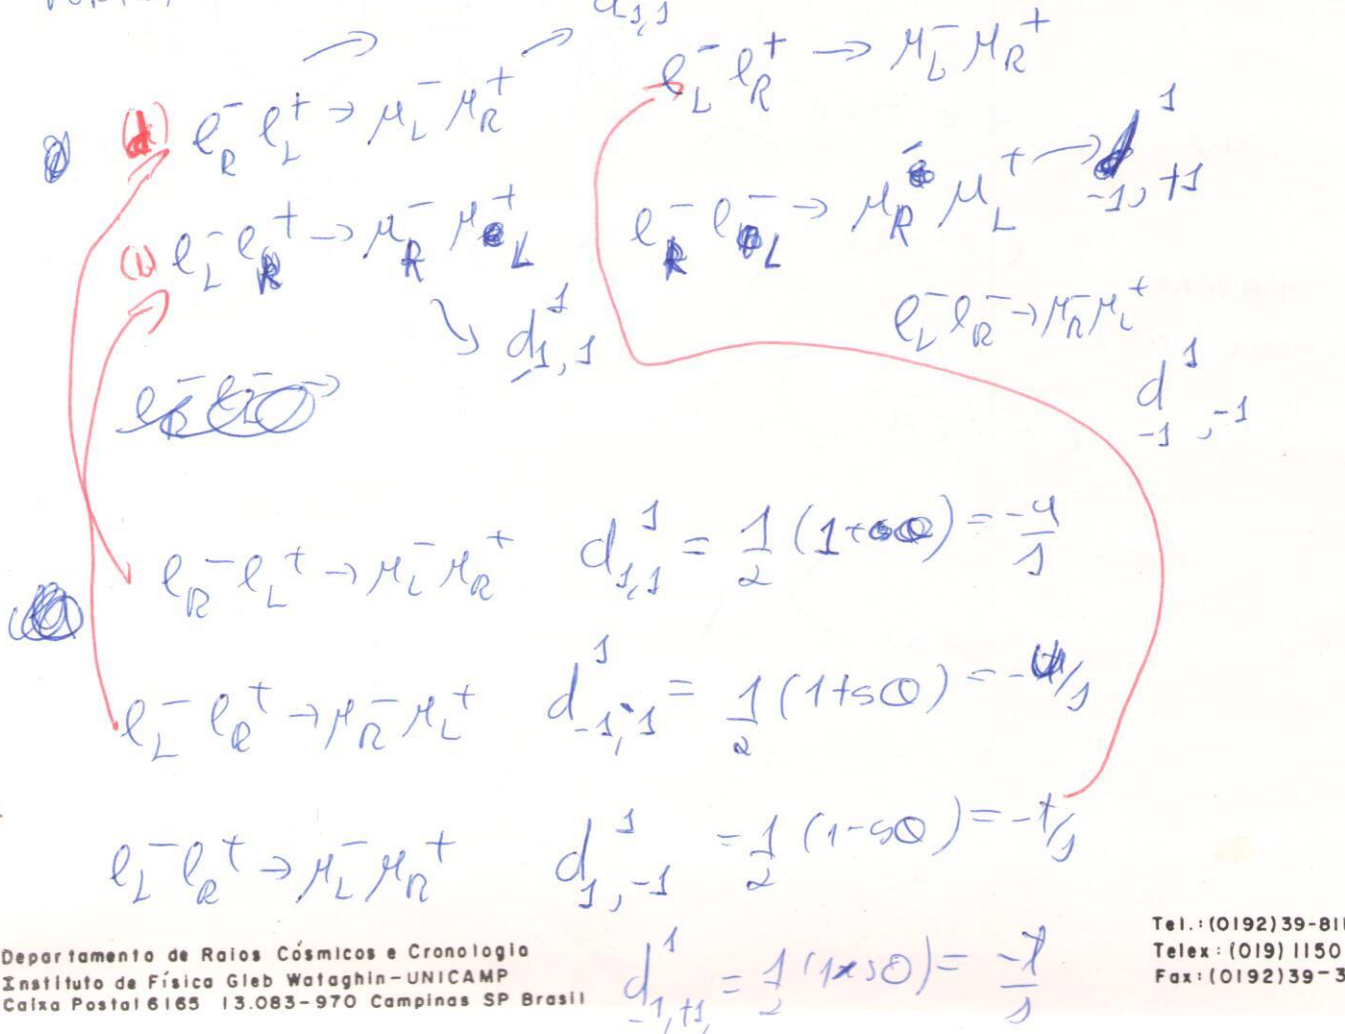 d_{1,1}
(d) e_R^- e_L^+ → μ_L^- μ_R^+ →
e_L^- e_R^+ → μ_L^- μ_R^+
(b) e_L^- e_R^+ → μ_R^- μ_L^+
e_R^- e_L^- → μ_R^- μ_L^+ → d^1_{-1,+1}
d^1_{1,1}
e_L^- e_R^- → μ_R^- μ_L^+
d^1_{-1,-1}
e_R^- e_L^+ → μ_L^- μ_R^+ d^1_{1,1} = 1/2 (1+cosθ) = -u/s
e_L^- e_R^+ → μ_R^- μ_L^+ d^1_{-1,-1} = 1/2 (1+sθ) = -u/s
e_L^- e_R^+ → μ_L^- μ_R^+ d^1_{1,-1} = 1/2 (1-sθ) = -t/s
d^1_{-1,+1,} = 1/2 (1 sθ) = -t/s
Departamento de Raios Cósmicos e Cronologia
Instituto de Física Gleb Wataghin-UNICAMP
Caixa Postal 6165 13.083-970 Campinas SP Brasil
Tel.:(0192)39-81
Telex: (019) 1150
Fax:(0192)39-3